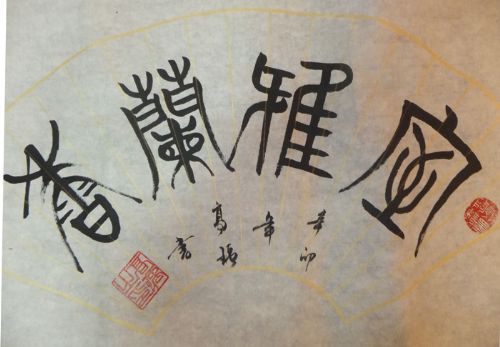 室雅蘭香
辛卯
年
高振
書